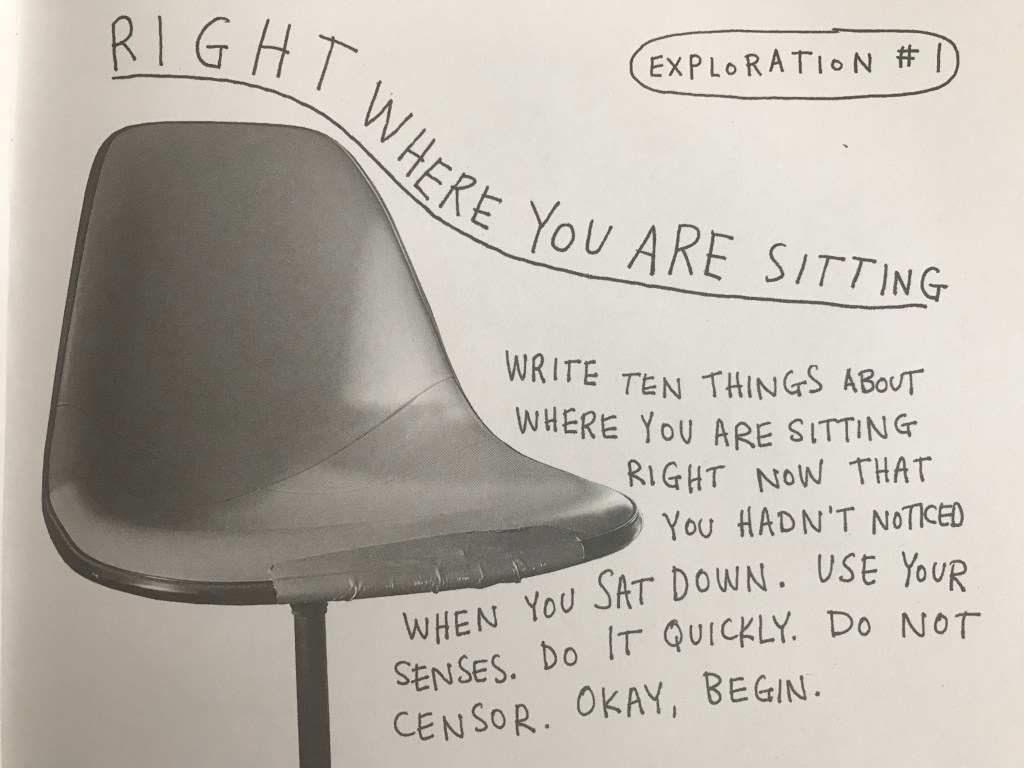 EXPLORATION #1
RIGHT WHERE YOU ARE SITTING
WRITE TEN THINGS ABOUT
WHERE YOU ARE SITTING
RIGHT NOW THAT
YOU HADN'T NOTICED
WHEN YOU SAT DOWN. USE YOUR
SENSES. DO IT QUICKLY. DO NOT
CENSOR. OKAY, BEGIN.